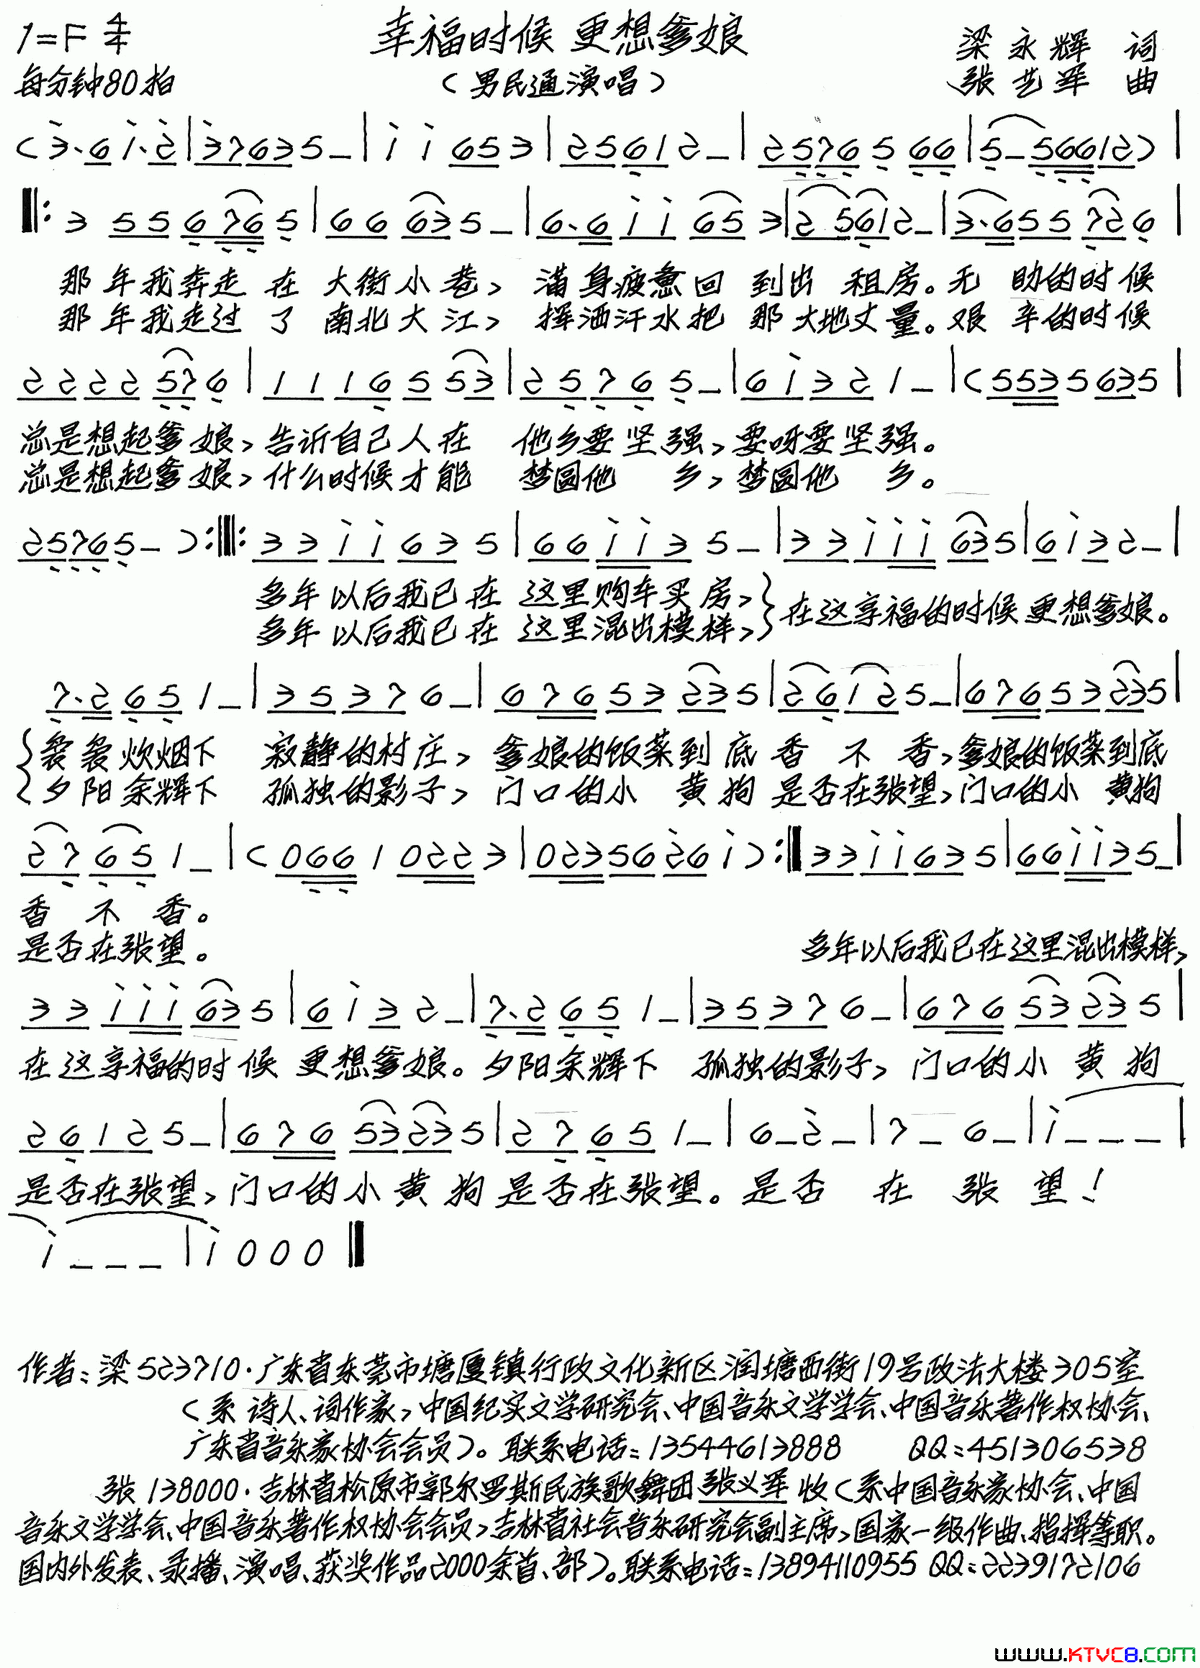 1=F 4/4 幸福时候 更想爹娘 梁永辉 词
每分钟80拍 (男民通演唱) 张艺军 曲
(3·6 1·2|37635_|1 1 653|25612_|2576566|5_56612)|
‖:3 556765|66635_|6·611653|25612_|3·655726|
那年我奔走在大街小巷,满身疲惫回到出租房。无助的时候
那年我走过了南北大江,挥洒汗水把那大地丈量。艰辛的时候
2222576|1116553|25765_|61321_|(5535635|
总是想起爹娘,告诉自己人在他乡要坚强,要呀要坚强。
总是想起爹娘,什么时候才能梦圆他乡,梦圆他乡。
25765_):‖:3311635|661135_|33111635|6132_|
多年以后我已在这里购车买房,}在这享福的时候更想爹娘。
多年以后我已在这里混出模样,
7·2651_|35376_|67653235|26125_|67653235|
袅袅炊烟下寂静的村庄,爹娘的饭菜到底香不香,爹娘的饭菜到底
夕阳余辉下孤独的影子,门口的小黄狗是否在张望,门口的小黄狗
27651_|(06610223|02356261):‖3311635|661135_|
香不香。
是否在张望。 多年以后我已在这里混出模样,
33111635|6132_|7·2651_|35376_|67653235|
在这享福的时候更想爹娘。夕阳余辉下孤独的影子,门口的小黄狗
26125_|67653235|27651_|6_2_|7_6_|1___|
是否在张望,门口的小黄狗是否在张望。是否在张望!
1___|1000‖
作者:梁523710·广东省东莞市塘厦镇行政文化新区润塘西街19号政法大楼305室
(系诗人、词作家,中国纪实文学研究会、中国音乐文学学会、中国音乐著作权协会、
广东省音乐家协会会员)。联系电话:13544613888 QQ:451306538
张138000·吉林省松原市郭尔罗斯民族歌舞团张义军收(系中国音乐家协会、中国
音乐文学学会、中国音乐著作权协会会员,吉林省社会音乐研究会副主席,国家一级作曲、指挥等职。
国内外发表、录播、演唱、获奖作品2000余首、部)。联系电话:13894110955 QQ:2239172106
www.KTVC8.com